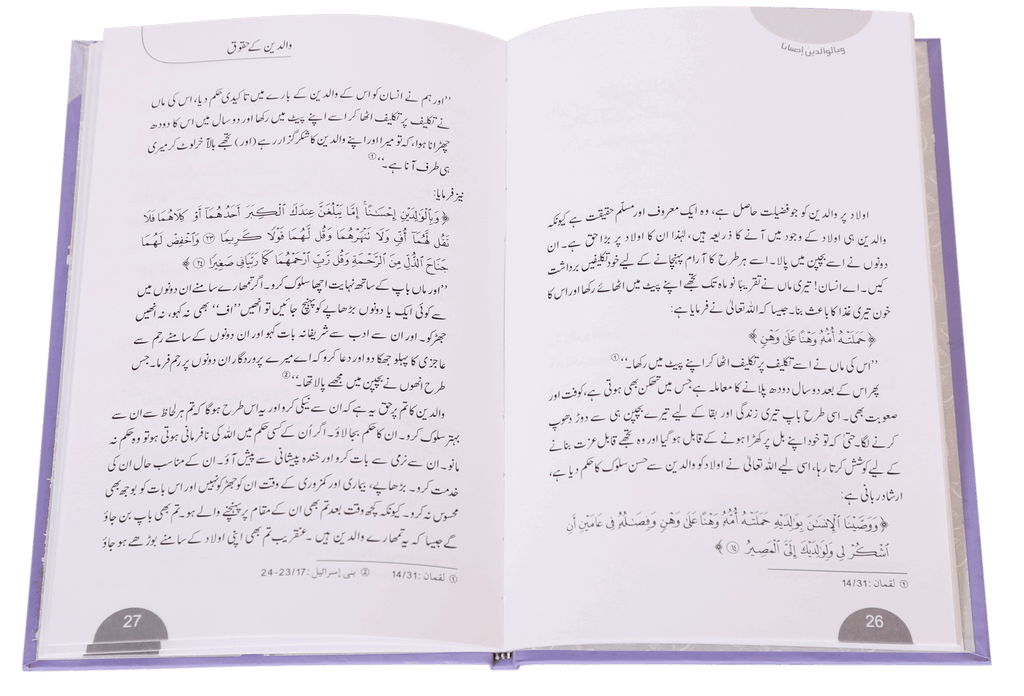 وبالوالدین إحسانا
اولاد پر والدین کو جو فضیلت حاصل ہے، وہ ایک معروف اور مسلّم حقیقت ہے کیونکہ
والدین ہی اولاد کے وجود میں آنے کا ذریعہ ہیں، لہٰذا ان کا اولاد پر بڑا حق ہے۔ ان
دونوں نے اسے بچپن میں پالا۔ اسے ہر طرح کا آرام پہنچانے کے لیے خود تکلیفیں برداشت
کیں۔ اے انسان! تیری ماں نے تقریباً نو ماہ تک تجھے اپنے پیٹ میں اٹھائے رکھا اور اس کا
خون تیری غذا کا باعث بنا۔ جیسا کہ اللہ تعالیٰ نے فرمایا ہے:
﴿ حَمَلَتْهُ أُمُّهُ وَهْنًا عَلَىٰ وَهْنٍ ﴾
’’اس کی ماں نے اسے تکلیف پر تکلیف اٹھا کر اپنے پیٹ میں رکھا۔‘‘①
پھر اس کے بعد دو سال دودھ پلانے کا معاملہ ہے جس میں تھکن بھی ہوتی ہے، کوفت اور
صعوبت بھی۔ اسی طرح باپ تیری زندگی اور بقا کے لیے تیرے بچپن ہی سے دوڑ دھوپ
کرنے لگا۔ حتیٰ کہ تو خود اپنے بل پر کھڑا ہونے کے قابل ہو گیا اور وہ تجھے قابل عزت بنانے
کے لیے کوشش کرتا رہا، اسی لیے اللہ تعالیٰ نے اولاد کو والدین سے حسن سلوک کا حکم دیا ہے،
ارشاد ربانی ہے:
﴿ وَوَصَّيْنَا ٱلْإِنسَٰنَ بِوَٰلِدَيْهِ حَمَلَتْهُ أُمُّهُ وَهْنًا عَلَىٰ وَهْنٍ وَفِصَٰلُهُ فِي عَامَيْنِ أَنِ
ٱشْكُرْ لِي وَلِوَٰلِدَيْكَ إِلَيَّ ٱلْمَصِيرُ ١٤ ﴾
① لقمان: 14/31
26
والدین کے حقوق
’’اور ہم نے انسان کو اس کے والدین کے بارے میں تاکیدی حکم دیا، اس کی ماں
نے تکلیف پر تکلیف اٹھا کر اسے اپنے پیٹ میں رکھا اور دو سال میں اس کا دودھ
چھڑانا ہوا، کہ تو میرا اور اپنے والدین کا شکر گزار رہے (اور) تجھے بالآخر لوٹ کر میری
ہی طرف آنا ہے۔‘‘①
نیز فرمایا:
﴿ وَبِٱلْوَٰلِدَيْنِ إِحْسَٰنًا إِمَّا يَبْلُغَنَّ عِندَكَ ٱلْكِبَرَ أَحَدُهُمَآ أَوْ كِلَاهُمَا فَلَا
تَقُل لَّهُمَآ أُفٍّ وَلَا تَنْهَرْهُمَا وَقُل لَّهُمَا قَوْلًا كَرِيمًا ٢٣ وَٱخْفِضْ لَهُمَا
جَنَاحَ ٱلذُّلِّ مِنَ ٱلرَّحْمَةِ وَقُل رَّبِّ ٱرْحَمْهُمَا كَمَا رَبَّيَانِي صَغِيرًا ٢٤ ﴾
’’اور ماں باپ کے ساتھ نہایت اچھا سلوک کرو۔ اگر تمھارے سامنے ان دونوں میں
سے کوئی ایک یا دونوں بڑھاپے کو پہنچ جائیں تو انھیں ’’اف‘‘ بھی نہ کہو، نہ انھیں
جھڑکو۔ اور ان سے ادب سے شریفانہ بات کہو اور ان دونوں کے سامنے رحم سے
عاجزی کا پہلو جھکا دو اور دعا کرو کہ اے میرے پروردگار ان دونوں پر رحم فرما۔ جس
طرح انھوں نے بچپن میں مجھے پالا تھا۔‘‘②
والدین کا تم پر حق یہ ہے کہ ان سے نیکی کرو اور یہ اس طرح ہوگا کہ تم ہر لحاظ سے ان سے
بہتر سلوک کرو۔ ان کا حکم بجا لاؤ۔ اگر اُن کے کسی حکم میں اللہ کی نافرمانی ہوتی ہو تو وہ حکم نہ
مانو۔ ان سے نرمی سے بات کرو اور خندہ پیشانی سے پیش آؤ۔ ان کے مناسب حال ان کی
خدمت کرو۔ بڑھاپے، بیماری اور کمزوری کے وقت ان کو جھڑکو نہیں اور اس بات کو بوجھ بھی
محسوس نہ کرو۔ کیونکہ کچھ وقت بعد تم بھی ان کے مقام پر پہنچنے والے ہو۔ تم بھی باپ بن جاؤ
گے جیسا کہ یہ تمھارے والدین ہیں۔ عنقریب تم بھی اپنی اولاد کے سامنے بوڑھے ہو جاؤ
① لقمان: 14/31 ② بنی إسرائیل: 24-23/17
27